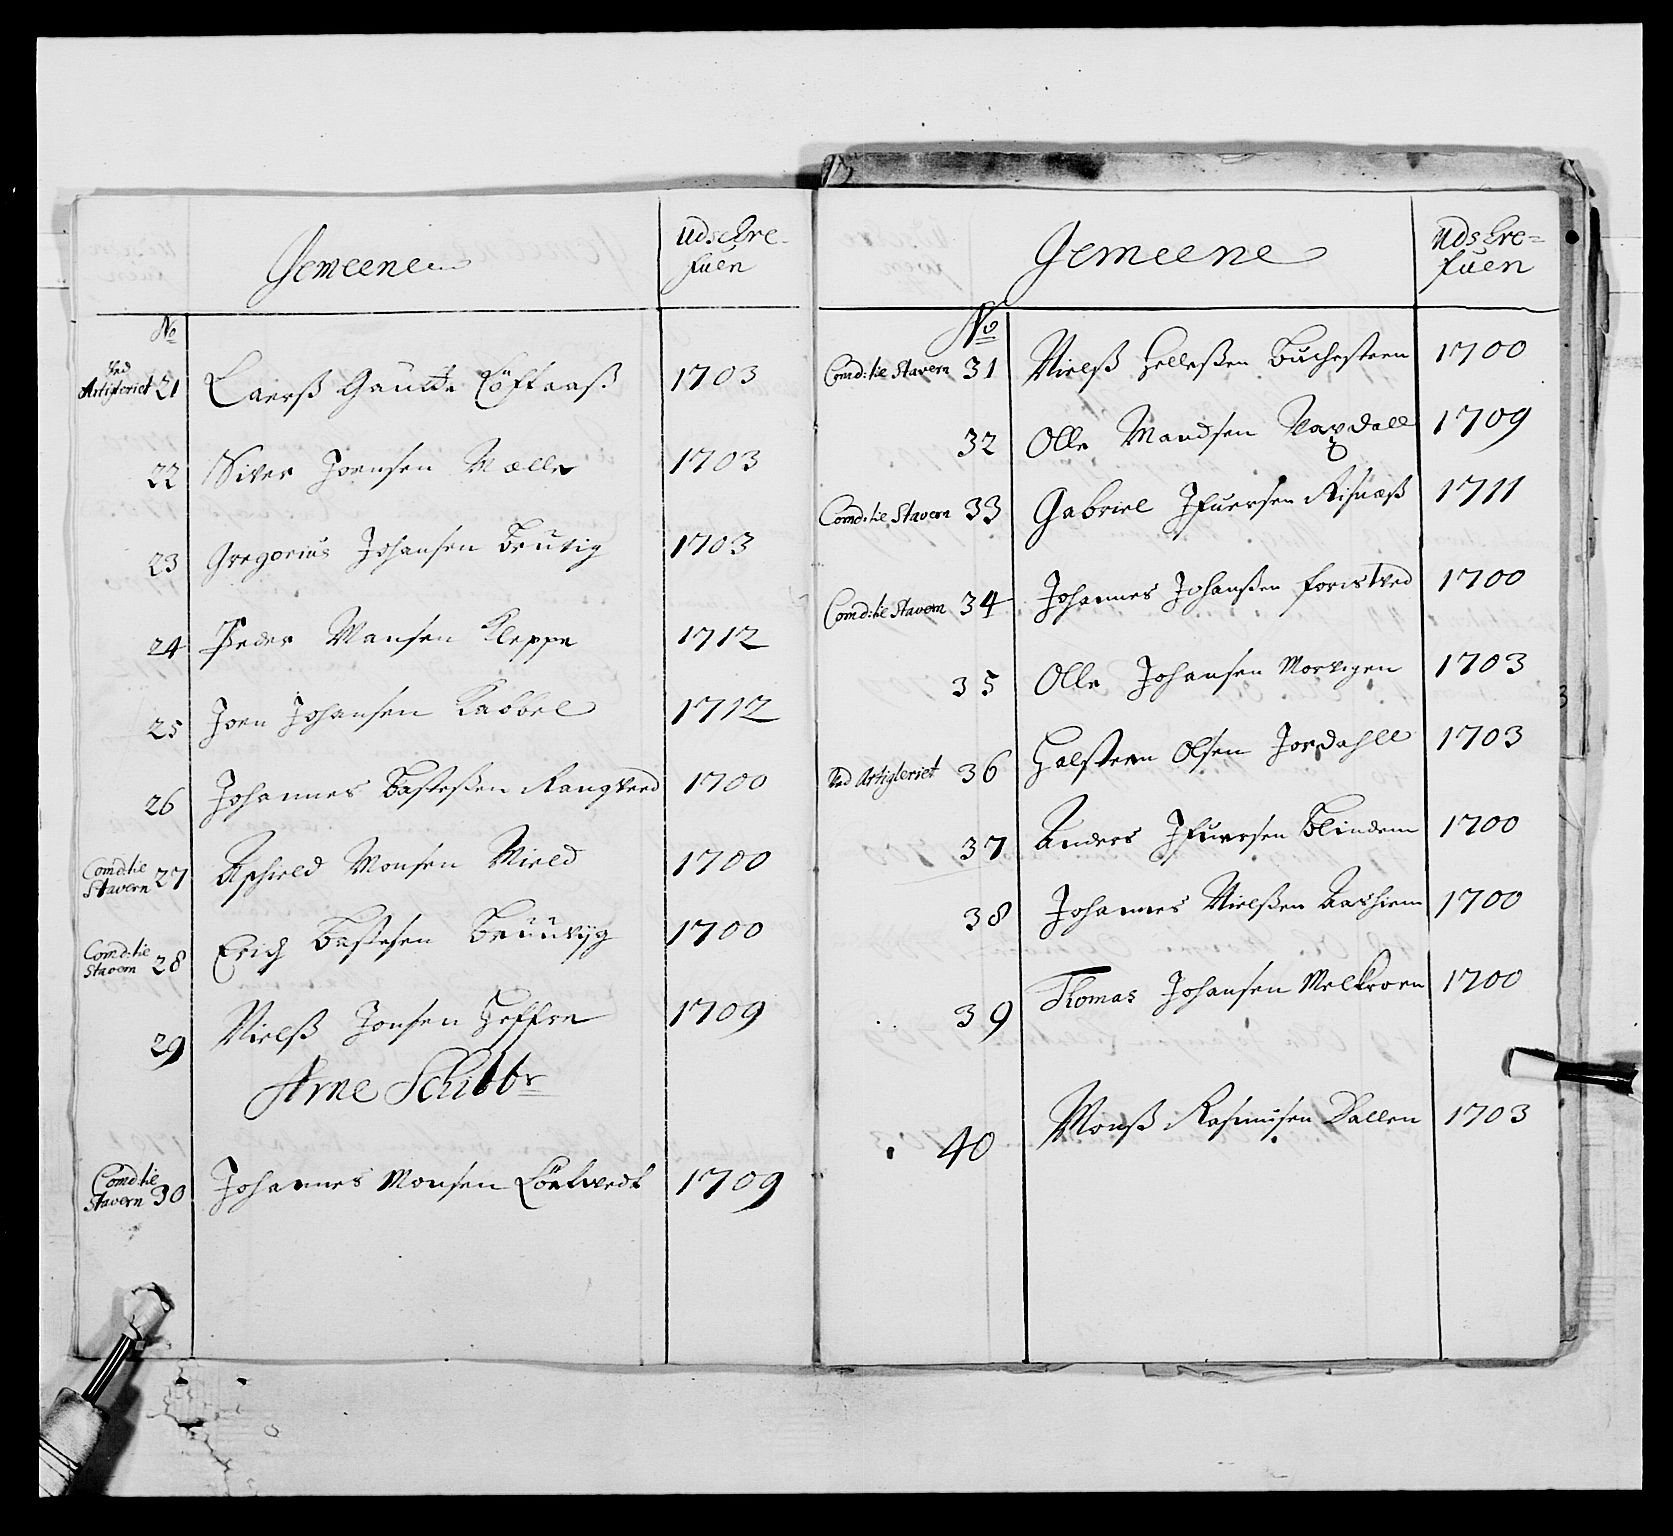 Gemeene
Udschre-
fuen
No
Ved
Artigleriet 21 Laerß Gautte Löftaaß 1703
22 Siver Joensen Mælle 1703
23 Gregorius Johansen Brutig 1703
24 Peder Mansen Kleppe 1712
25 Joen Johansen Kaobel 1712
26 Johannes Basteßen Rangved 1700
Comd:tie
Stavern 27 Aschield Monsen Mield 1700
Comd:tie
Stavern 28 Erich Bastesen Bruuvig 1700
29 Nielß Jonsen Heffre 1709
Arne Schibbr
Comd:tie
Stavern 30 Johannes Monsen 1709
Gemeene
Udskre=
fuen
No
Comd:tie Stavern 31 Nielß Helleßen Buchesteen 1700
32 Olle Mandsen Vaxdall 1709
Comd:tie Stavern 33 Gabriel Ifuersen Risnæß 1711
Comd:tie Stavern 34 Johannes Johanßen foristved 1700
35 Olle Johansen Morvigen 1703
Ved Artigleriet 36 Halsteen Olsen Jordahll 1703
37 Anders Ifuersen Blindem 1700
38 Johannes Nielßen Aashiem 1700
39 Thomas Johansen Melkroen 1700
40 Monß Rasmusen Dallen 1703